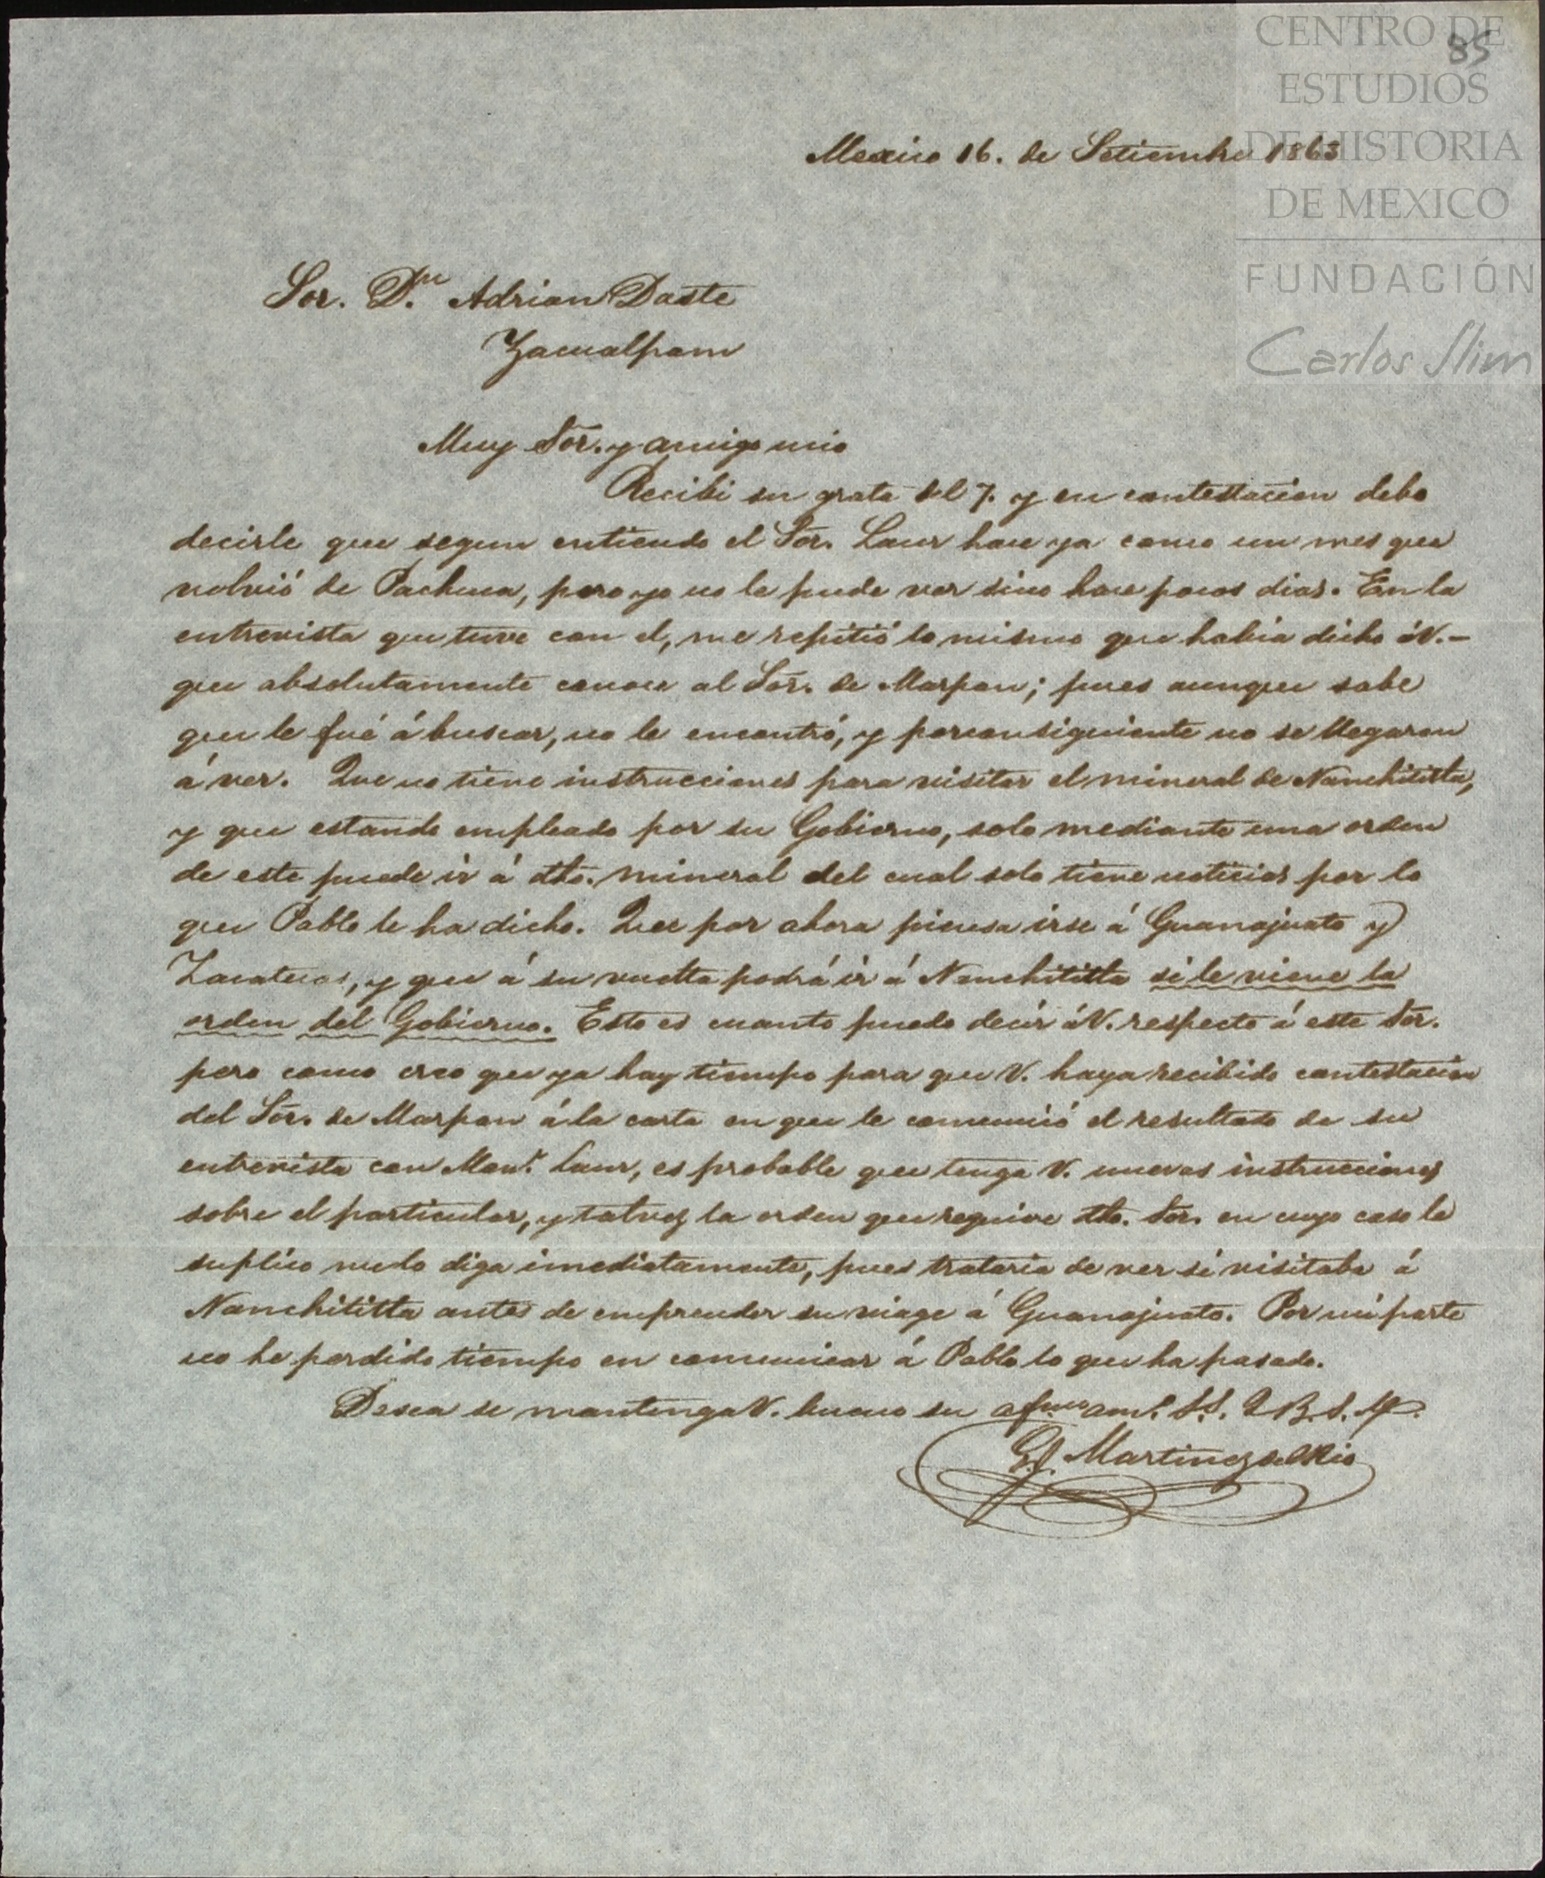 CENTRO DE
ESTUDIOS
DE HISTORIA
DE MEXICO
FUNDACIÓN
Carlos Slim
85
Mexico 16. de Setiembre 1863
Sor. D.n Adrian Daste
Zacualpam
Muy Sor. y amigo mio
Recibi su grata del 7. y en contestacion debo
decirle que segun entiendo el Sor. Laur hace ya como un mes que
volvió de Pachuca, pero yo no le pude ver sino hace pocos dias. En la
entrevista que tuve con el, me repitió lo mismo que habia dicho á V.–
que absolutamente conoce al Sor. de Marpon; pues aunque sabe
que le fué á buscar, no le encontró, y por consiguiente no se llegaron
á ver. Que no tiene instrucciones para visitar el mineral de Nanchititla,
y que estando empleado por su Gobierno, solo mediante una orden
de este puede ir á dho. mineral del cual solo tiene noticias por lo
que Pablo le ha dicho. Que por ahora piensa irse á Guanajuato y
Zacatecas, y que á su vuelta podrá ir á Nanchititla si le viene la
orden del Gobierno. Esto es cuanto puedo decir á V. respecto á este Sor.
pero como creo que ya hay tiempo para que V. haya recibido contestacion
del Sor. de Marpon á la carta en que le comunicó el resultado de su
entrevista con Monr. Laur, es probable que tenga V. nuevas instrucciones
sobre el particular, y talvez la orden que require dho. Sor. en cuyo caso le
suplico me lo diga imediatamente, pues trataria de ver si visitaba á
Nanchititla antes de emprender su viage á Guanajuato. Por mi parte
no he perdido tiempo en comunicar á Pablo lo que ha pasado.
Desea se mantenga V. bueno su afmo am.o S.S. Q B. S. M.
Martinez del Rio